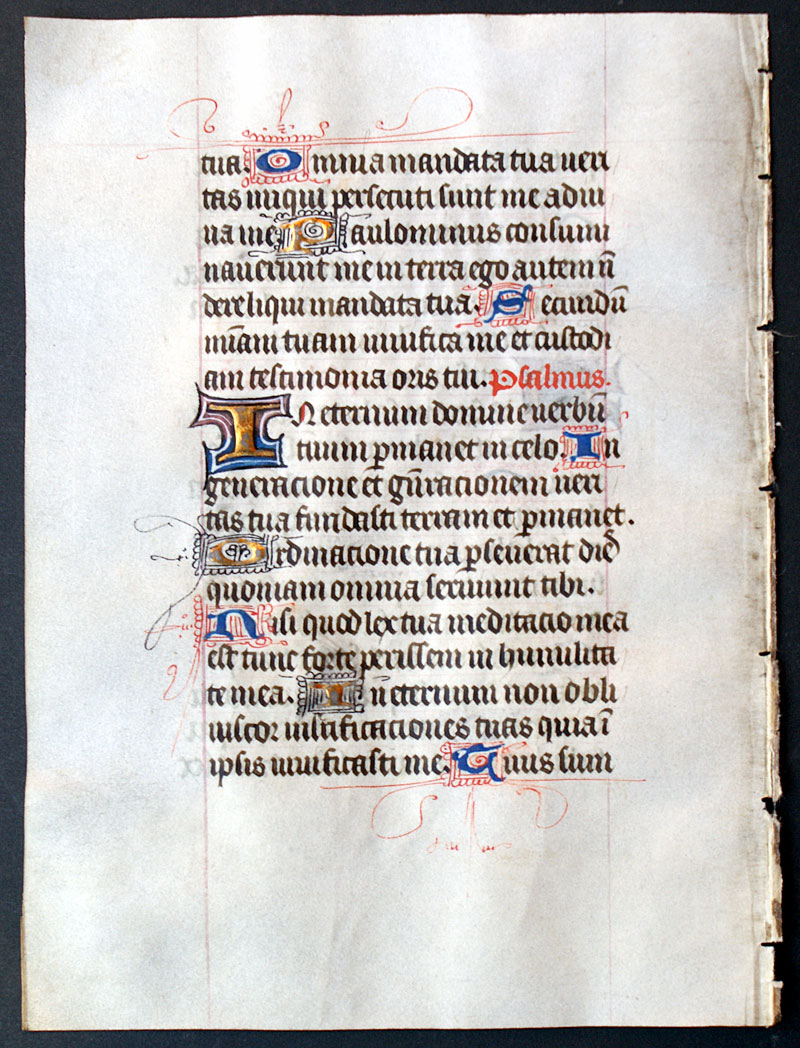 tua. Omnia mandata tua veri
tas iniqui persecuti sunt me adiu
va me Paulominus consum
naverunt me in terra ego autem nͦ
dereliqui mandata tua. Secundū
miam tuam vivifica me et custodi
am testimonia oris tui. Psalmus.
In eternum domine verbū
tuum ꝑmanet in celo. In
generacione et gn̄racionem veri
tas tua fundasti terram et ꝑmanet.
Ordinacione tua ꝑseverat dies
quoniam omnia serviunt tibi.
Nisi quod lex tua meditacio mea
est tunc forte perissem in humilita
te mea. In eternum non obli
viscor iustificaciones tuas quia ī
ipsis vivificasti me. Tuus sum